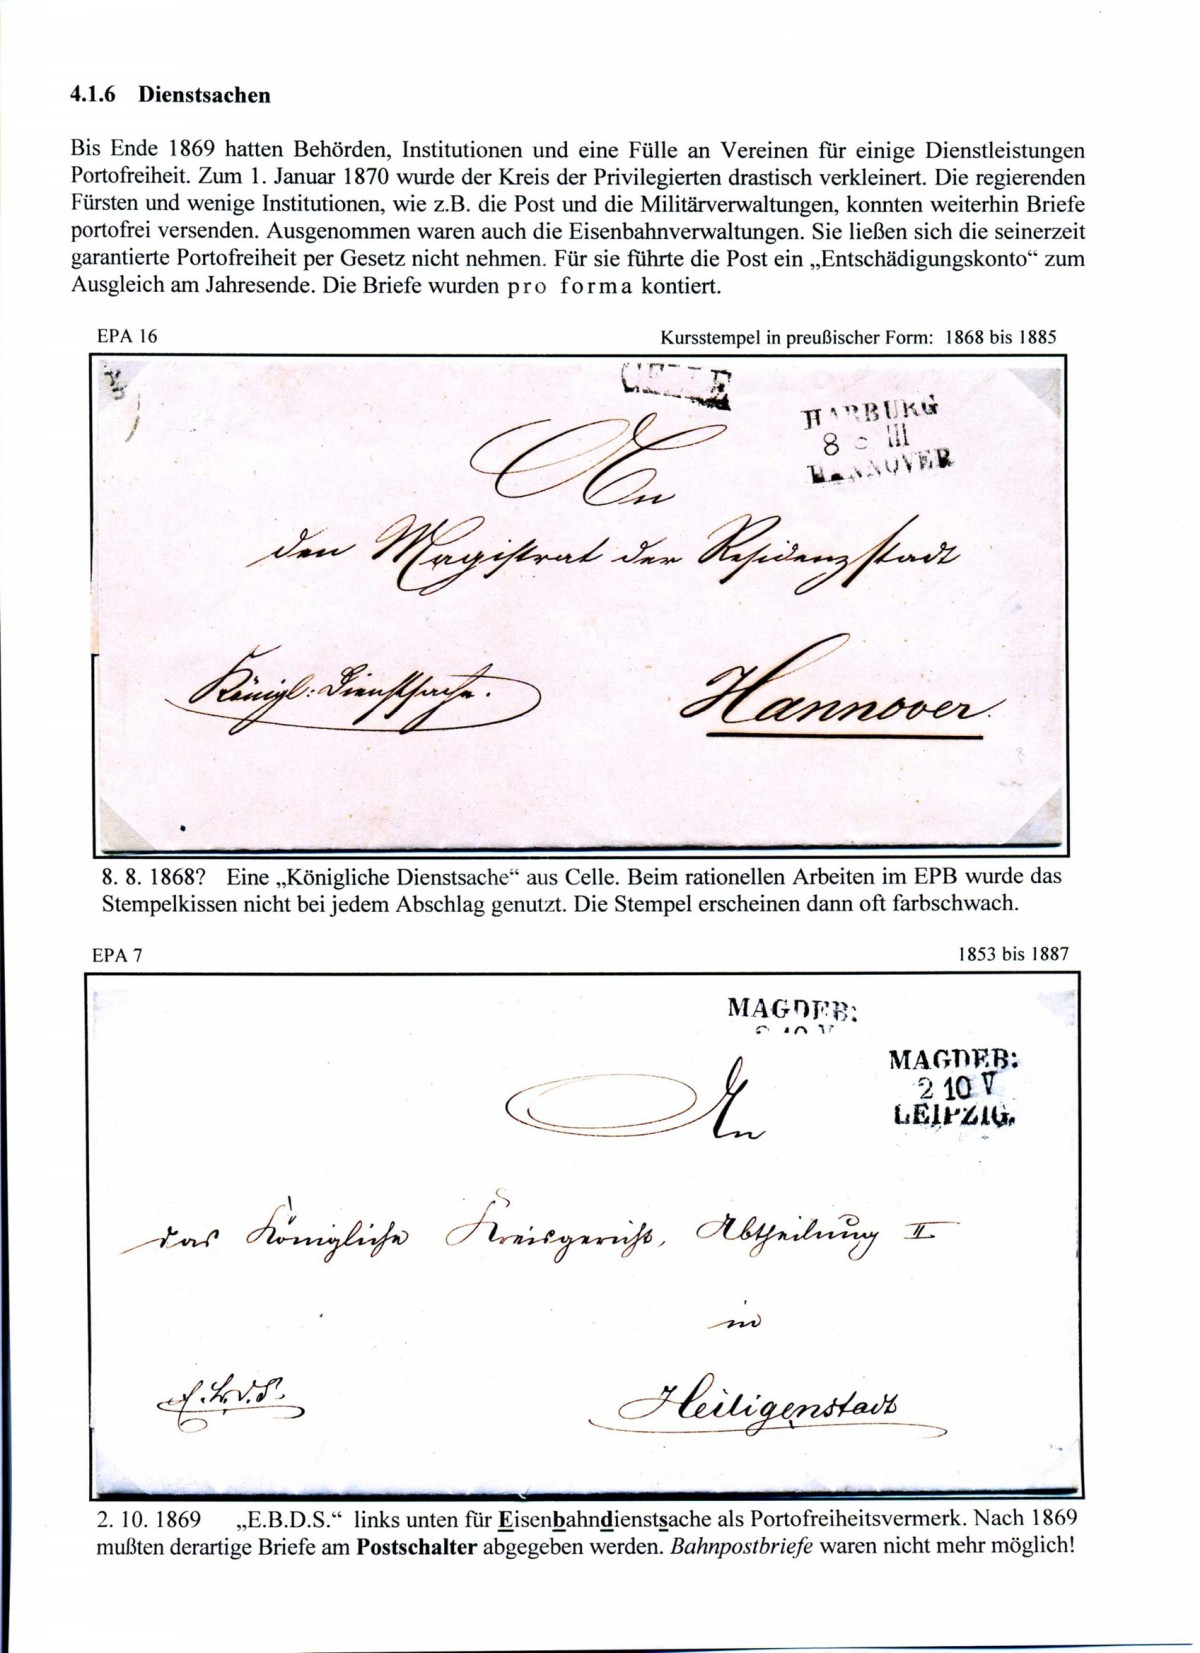 4.1.6 Dienstsachen
Bis Ende 1869 hatten Behörden, Institutionen und eine Fülle an Vereinen für einige Dienstleistungen
Portofreiheit. Zum 1. Januar 1870 wurde der Kreis der Privilegierten drastisch verkleinert. Die regierenden
Fürsten und wenige Institutionen, wie z.B. die Post und die Militärverwaltungen, konnten weiterhin Briefe
portofrei versenden. Ausgenommen waren auch die Eisenbahnverwaltungen. Sie ließen sich die seinerzeit
garantierte Portofreiheit per Gesetz nicht nehmen. Für sie führte die Post ein „Entschädigungskonto“ zum
Ausgleich am Jahresende. Die Briefe wurden pro forma kontiert.
EPA 16 Kursstempel in preußischer Form: 1868 bis 1885
CELLE
HARBURG
8 III
HANNOVER
An
den Magistrat der Residenzstadt
Königl: Dienstsache.
Hannover.
8. 8. 1868? Eine „Königliche Dienstsache“ aus Celle. Beim rationellen Arbeiten im EPB wurde das
Stempelkissen nicht bei jedem Abschlag genutzt. Die Stempel erscheinen dann oft farbschwach.
EPA 7 1853 bis 1887
MAGDEB:
MAGDEB:
2 10 V
LEIPZIG.
An
das Königliche Kreisgericht, Abtheilung II
in
E.B.D.S.
Heiligenstadt
2. 10. 1869 „E.B.D.S.“ links unten für Eisenbahndienstsache als Portofreiheitsvermerk. Nach 1869
mußten derartige Briefe am Postschalter abgegeben werden. Bahnpostbriefe waren nicht mehr möglich!